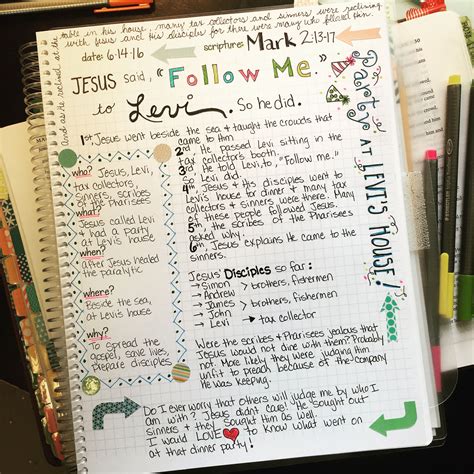 And as he reclined at the
table in his house, many tax collectors and sinners were reclining
with Jesus and His disciples for there were many who followed him.
date: 6·14·16
scripture: Mark 2:13-17
JESUS said, "Follow Me."
to Levi. So he did.
Party AT LEVI'S HOUSE!
1st, Jesus went beside the sea + taught the crowds that
came to him
2nd, He passed Levi sitting in the
tax collector's booth.
3rd, He told Levi to, "Follow me."
So Levi did.
4th, Jesus + His disciples went to
Levi's house for dinner + many tax
collectors + sinners were there. Many
of these people followed Jesus.
5th, the scribes of the Pharisees
asked why.
6th, Jesus explains He came to the
sinners.
who?
Jesus, Levi,
tax collectors,
sinners, scribes
of the Pharisees
what?
Jesus called Levi
+ had a party
at Levi's house
when?
after Jesus healed
the paralytic
where?
Beside the sea,
at Levi's house
why?
To spread the
gospel, save lives,
prepare disciples.
Jesus' Disciples so far:
→ Simon
→ Andrew > brothers, fishermen
→ James
→ John > brothers, fishermen
→ Levi → tax collector
Were the scribes + Pharisees jealous that
Jesus would not dine with them? Probably
not. More likely they were judging Him
unfit to preach because of the company
He was keeping.
Do I ever worry that others will judge me by who I
am with? Jesus didn't care! He sought out
sinners + they sought Him as well.
I would LOVE to know what went on
at that dinner party!